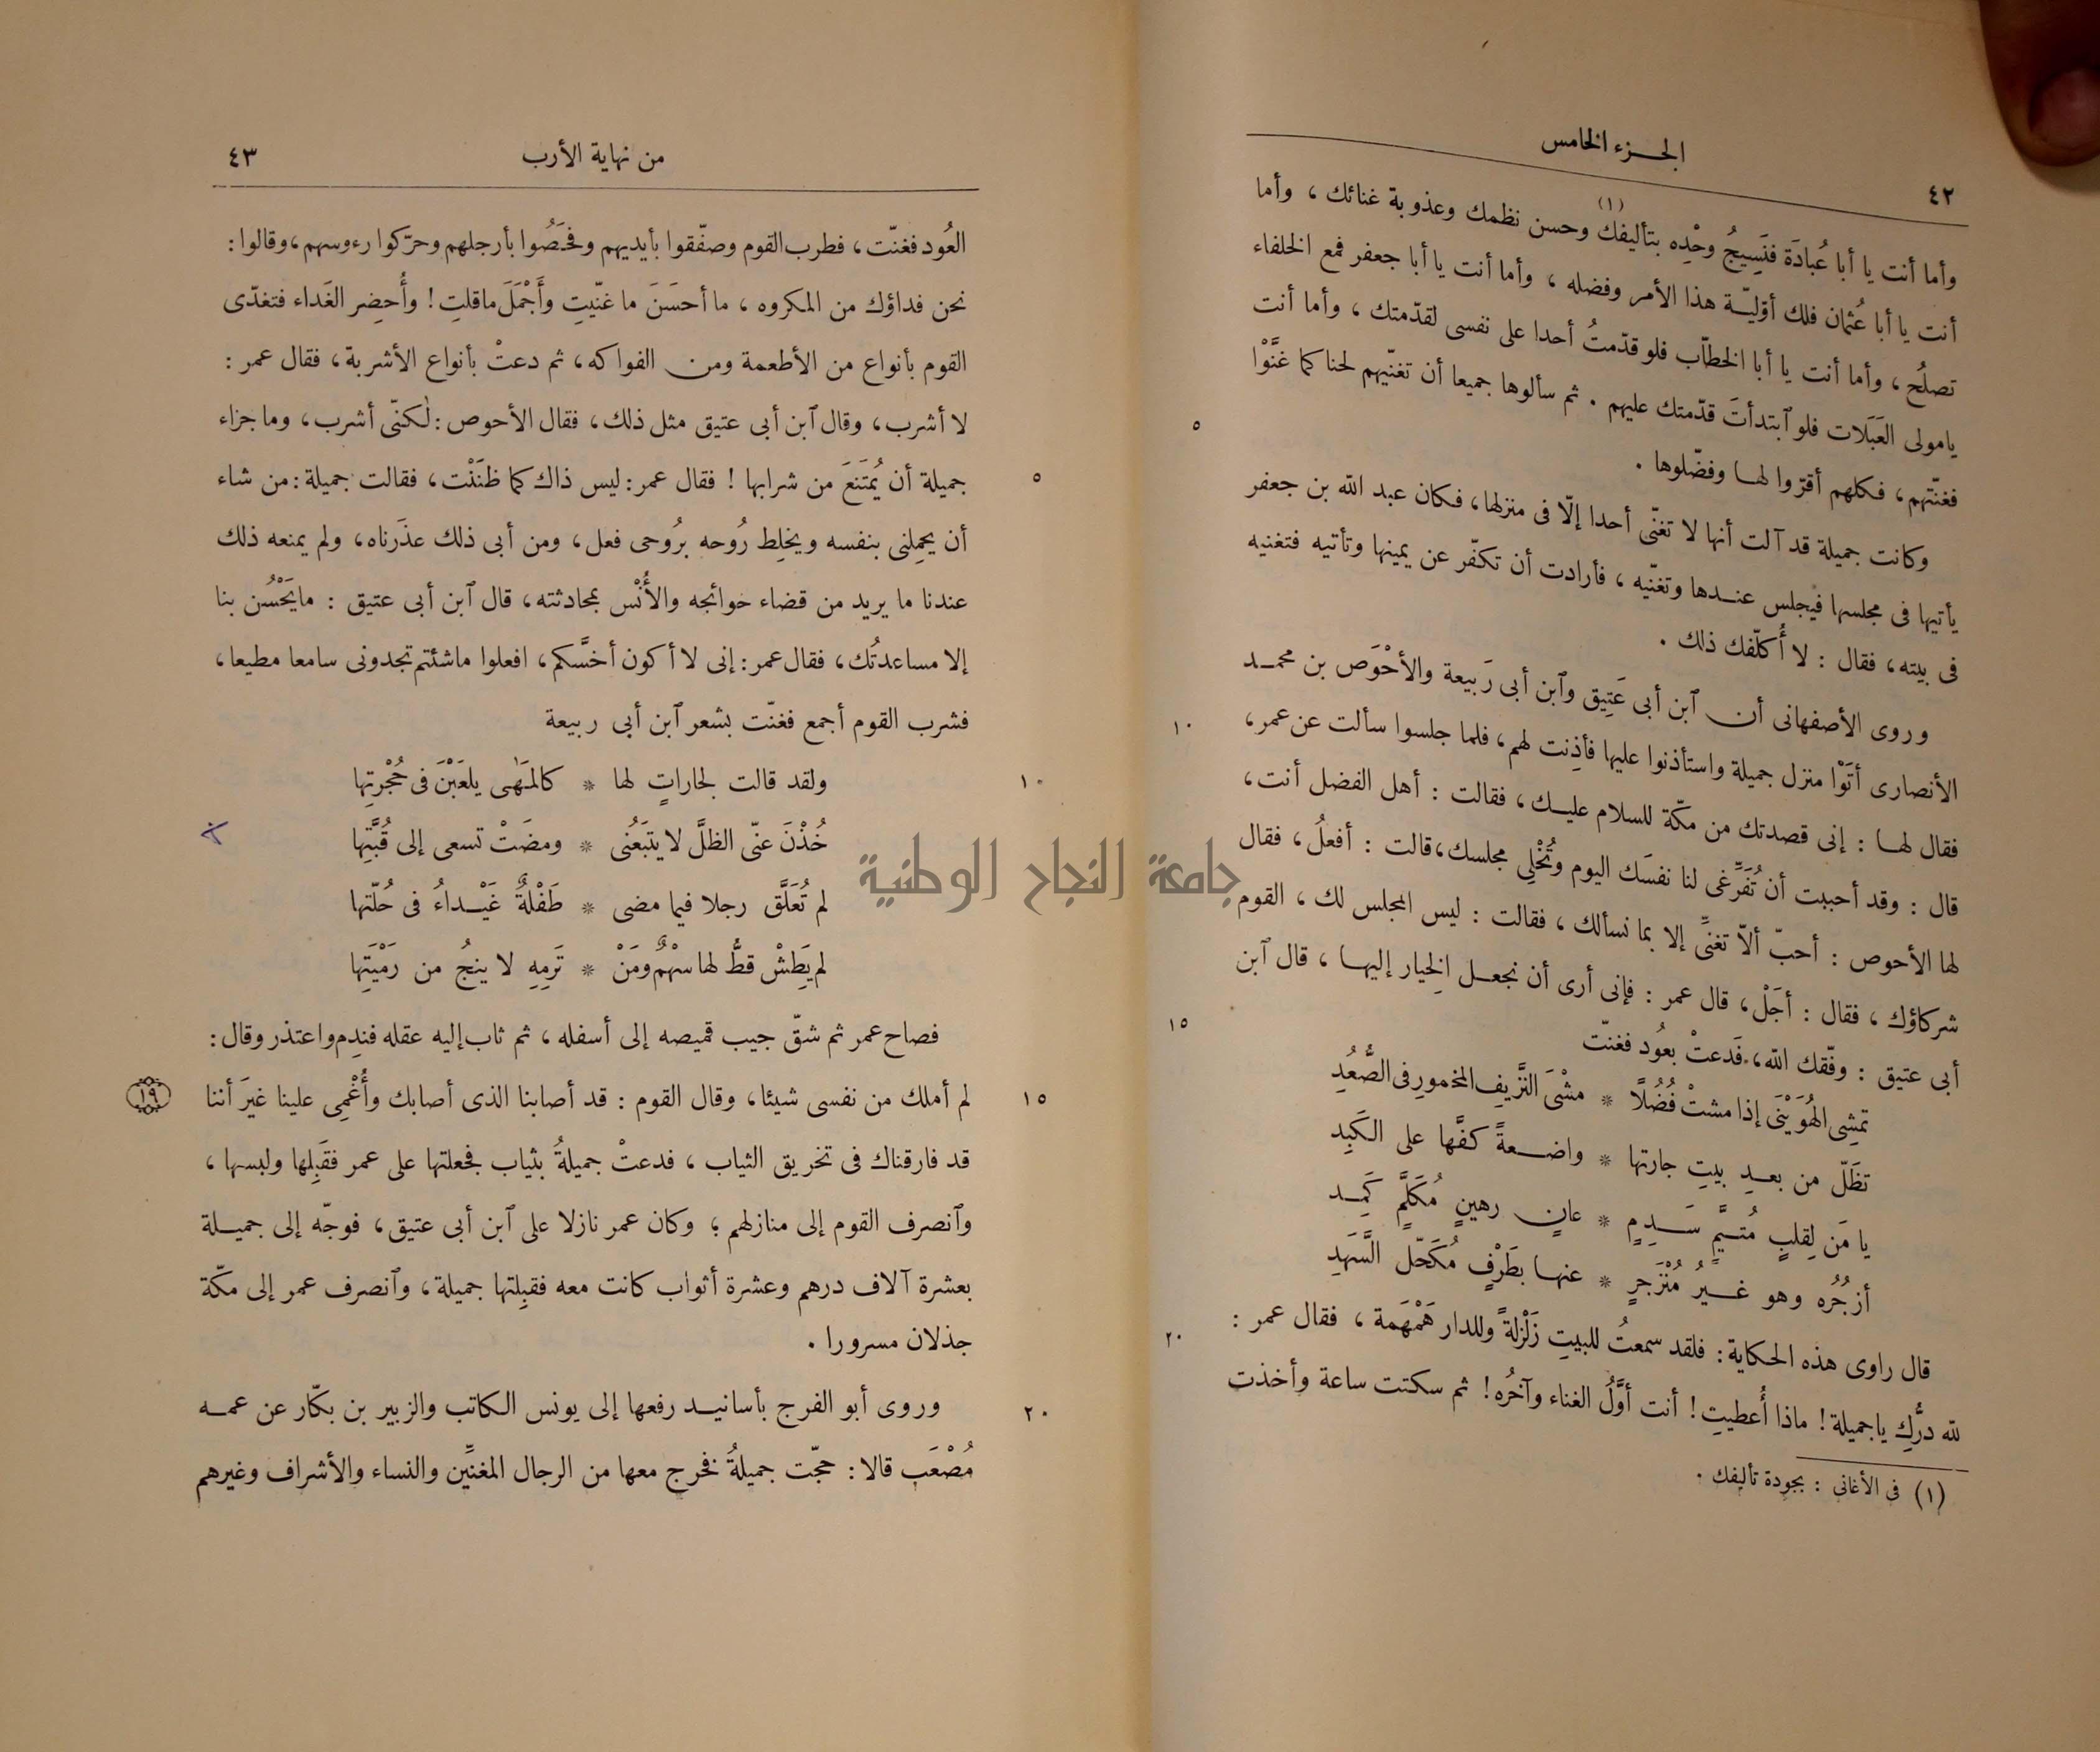 ٤٢
الجزء الخامس
وأما أنت يا أبا عُبادَة فنَسِيجُ وحْدِه بتأليفك (١) وحسن نظمك وعذوبة غنائك ، وأما
أنت يا أبا عُثمان فلك أوّليّة هذا الأمر وفضله ، وأما أنت يا أبا جعفر فمع الخلفاء
تصلُح ، وأما أنت يا أبا الخطّاب فلو قدّمتُ أحدا على نفسى لقدّمتك ، وأما أنت
يامولى العَبَلات فلو ٱبتدأتَ قدّمتك عليهم . ثم سألوها جميعا أن تغنّيهم لحنا كما غَنَّوْا
٥
فغنّتهم ، فكلهم أقرّوا لها وفضّلوها .
وكانت جميلة قد آلت أنها لا تغنّى أحدا إلّا فى منزلها ، فكان عبد الله بن جعفر
يأتيها فى مجلسها فيجلس عندها وتغنّيه ، فأرادت أن تكفّر عن يمينها وتأتيه فتغنيه
فى بيته ، فقال : لا أُكلّفك ذلك .
وروى الأصفهانى أن ٱبن أبى عَتِيق وٱبن أبى رَبيعة والأحْوَص بن محمد
١٠
الأنصارى أتَوْا منزل جميلة واستأذنوا عليها فأذِنت لهم ، فلما جلسوا سألت عن عمر ،
فقال لها : إنى قصدتك من مكّة للسلام عليك ، فقالت : أهل الفضل أنت ،
قال : وقد أحببت أن تُفَرِّغى لنا نفسَك اليوم وتُخْلِى مجلسك ، قالت : أفعلُ ، فقال
لها الأحوص : أحبّ ألاّ تغنِّى إلا بما نسألك ، فقالت : ليس المجلس لك ، القوم
شركاؤك ، فقال : أجَلْ ، قال عمر : فإنى أرى أن نجعل الخِيار إليها ، قال ٱبن
١٥
أبى عتيق : وفّقك الله ، فَدعتْ بعُود فغنّت
تمشِى الهُوَيْنَى إذا مشتْ فُضُلًا * مشْىَ النَّزِيفِ المخمورِ فى الصُّعُدِ
تظَلّ من بعدِ بيتِ جارتها * واضعةً كفَّها على الكَبِد
يا مَن لِقلبٍ مُتيَّمٍ سَدِمٍ * عانٍ رهينٍ مُكَلَّمٍ كَمِد
أزجُرُه وهو غيرُ مُنْزَجرٍ * عنها بطَرْفٍ مُكَحّل السَّهَدِ
قال راوى هذه الحكاية : فلقد سمعتُ للبيتِ زَلْزلةً وللدار هَمْهَمة ، فقال عمر :
٢٠
لله درُّكِ ياجميلة ! ماذا أُعطيتِ ! أنت أوَّلُ الغناء وآخرُه ! ثم سكتت ساعة وأخذت
(١) فى الأغانى : بجودة تأليفك .
من نهاية الأرب
٤٣
العُود فغنّت ، فطرب القوم وصفّقوا بأيديهم وفحَصُوا بأرجلهم وحرّكوا رءوسهم ، وقالوا :
نحن فداؤك من المكروه ، ما أحسَنَ ما غنّيتِ وأَجْمَلَ ماقلتِ ! وأُحضِر الغَداء فتغدّى
القوم بأنواع من الأطعمة ومن الفواكه ، ثم دعتْ بأنواع الأشربة ، فقال عمر :
لا أشرب ، وقال ٱبن أبى عتيق مثل ذلك ، فقال الأحوص : لٰكنّى أشرب ، وما جزاء
٥
جميلة أن يُمتَنَعَ من شرابها ! فقال عمر : ليس ذاك كما ظنَنْت ، فقالت جميلة : من شاء
أن يحمِلنى بنفسه ويخلِط رُوحه برُوحى فعل ، ومن أبى ذلك عذَرناه ، ولم يمنعه ذلك
عندنا ما يريد من قضاء حوائجه والأُنْس بمحادثته ، قال ٱبن أبى عتيق : مايَحْسُن بنا
إلا مساعدتُك ، فقال عمر : إنى لا أكون أخسَّكم ، افعلوا ماشئتم تجدونى سامعا مطيعا ،
فشرب القوم أجمع فغنّت بشعر ٱبن أبى ربيعة
١٠
ولقد قالت لجاراتٍ لها * كالمَهَى يلعَبْنَ فى حُجْرتِها
خُذْنَ عنّى الظلَّ لا يتبَعُنى * ومضَتْ تسعى إلى قُبَّتِها
لم تُعَلَّق رجلا فيما مضى * طَفْلةٌ غَيْداءُ فى حُلّتها
لم يَطِشْ قطُّ لها سهْمٌ ومَنْ * تَرمِهِ لا ينجُ من رَمْيَتِها
فصاح عمر ثم شقّ جيب قميصه إلى أسفله ، ثم ثاب إليه عقله فندِم واعتذر وقال :
١٥
لم أملك من نفسى شيئا ، وقال القوم : قد أصابنا الذى أصابك وأُغْمِى علينا غيرَ أننا
١٩
قد فارقناك فى تخريق الثياب ، فدعتْ جميلةُ بثياب فجعلتها على عمر فقَبِلها ولبسها ،
وٱنصرف القوم إلى منازلهم ؛ وكان عمر نازلا على ٱبن أبى عتيق ، فوجّه إلى جميلة
بعشرة آلاف درهم وعشرة أثواب كانت معه فقبِلتها جميلة ، وٱنصرف عمر إلى مكّة
جذلان مسرورا .
٢٠
وروى أبو الفرج بأسانيد رفعها إلى يونس الكاتب والزبير بن بكّار عن عمه
مُصْعَب قالا : حجّت جميلةُ فخرج معها من الرجال المغنِّين والنساء والأشراف وغيرهم
جامعة النجاح الوطنية